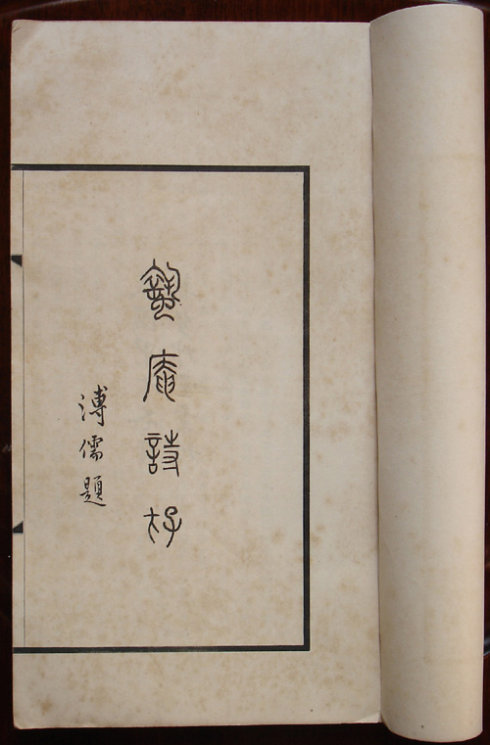 蟄庵詩存
溥儒題